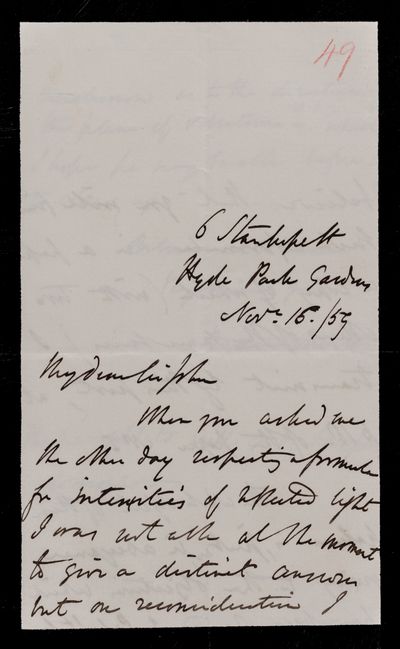 49
6 Stanhope St
Hyde Park Gardens
Novr. 16./59
My dear Sir John
When you asked me
the other day respecting a formula
for intensities of reflected light
I was not able at the moment
to give a distinct answer
but on reconsideration I